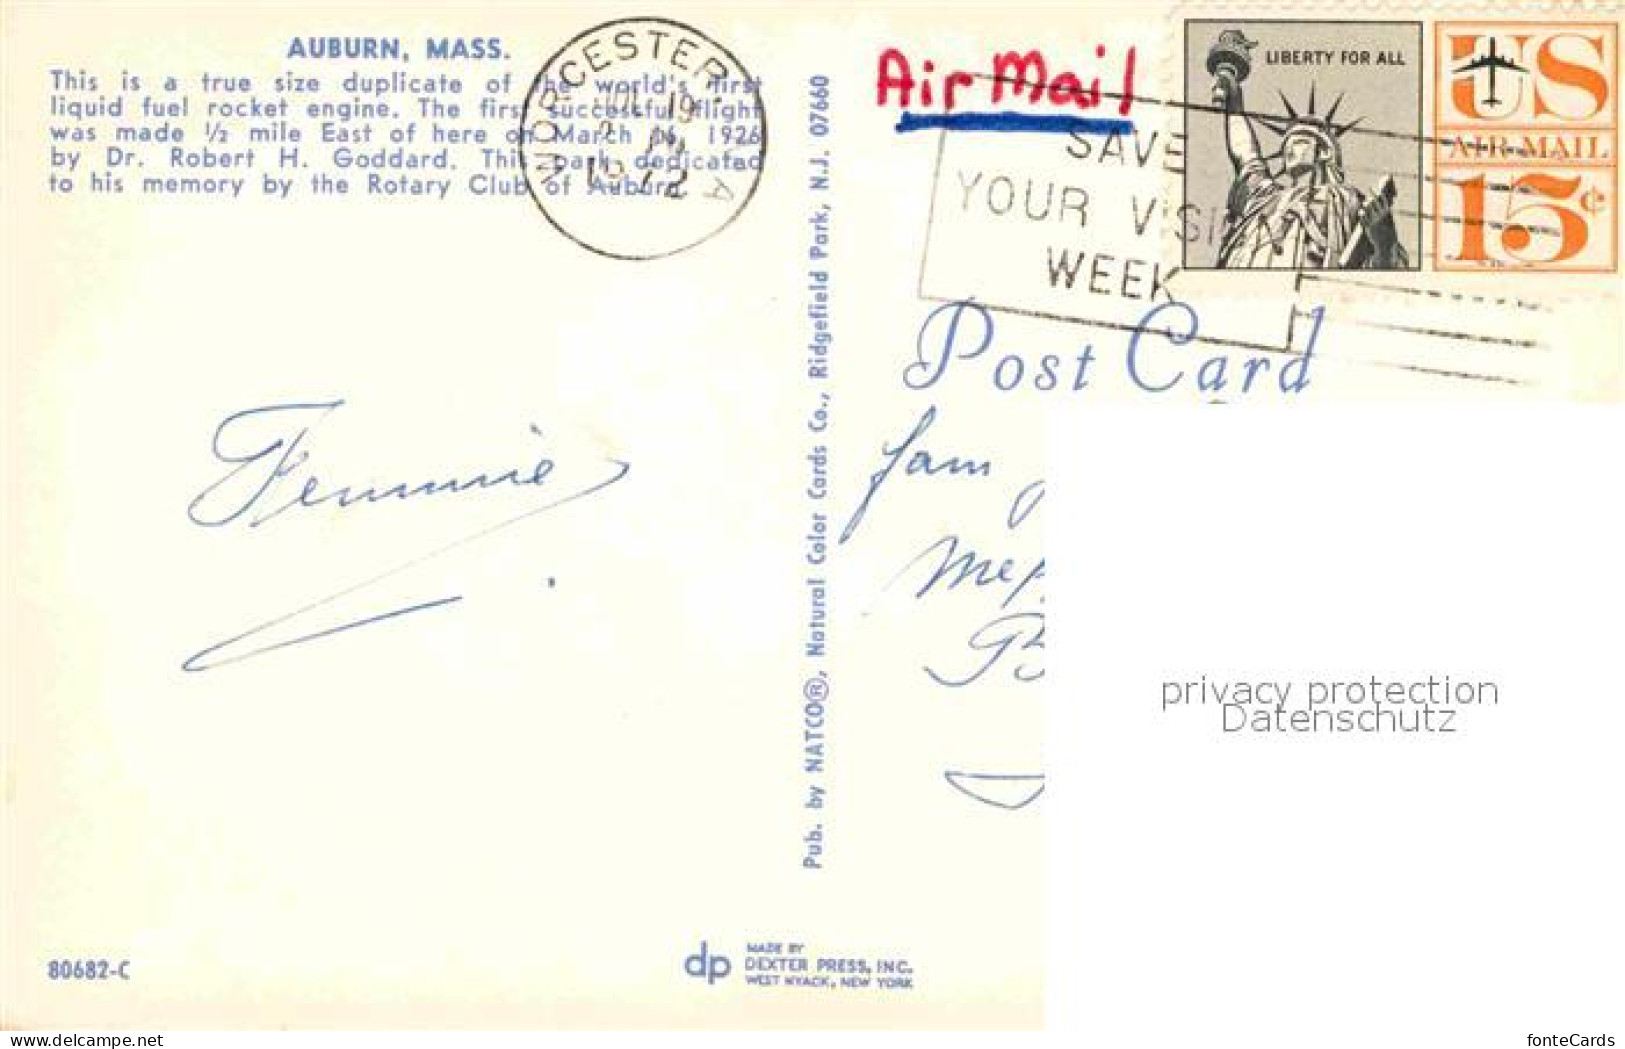 AUBURN, MASS.
This is a true size duplicate of the world's first
liquid fuel rocket engine. The first successful flight
was made ½ mile East of here on March 16, 1926
by Dr. Robert H. Goddard. This park dedicated
to his memory by the Rotary Club of Auburn.
WORCESTER
A
JUL 19
1972
Femmie
80682-C
dp
MADE BY
DEXTER PRESS, INC.
WEST NYACK, NEW YORK
Pub. by NATCO®, Natural Color Cards Co., Ridgefield Park, N.J. 07660
Air Mail
SAVE
YOUR VISION
WEEK
LIBERTY FOR ALL
US
AIR MAIL
15¢
Post Card
fam
privacy protection
Datenschutz
www.delcampe.net
fonteCards